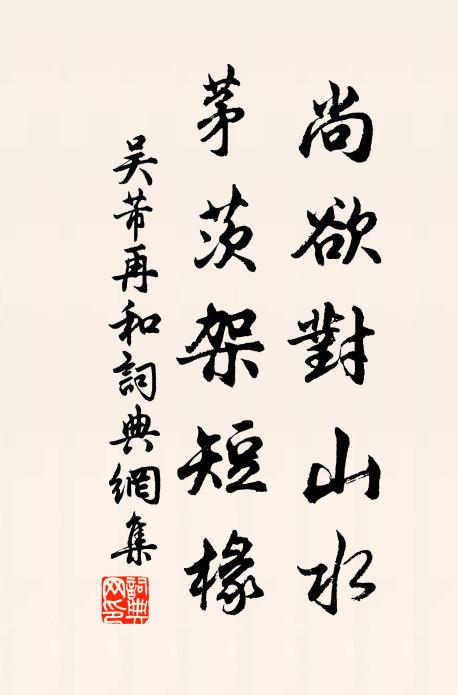 尚欲對山水
茅茨架短椽
吴芾再和詞典網集
詞典网印